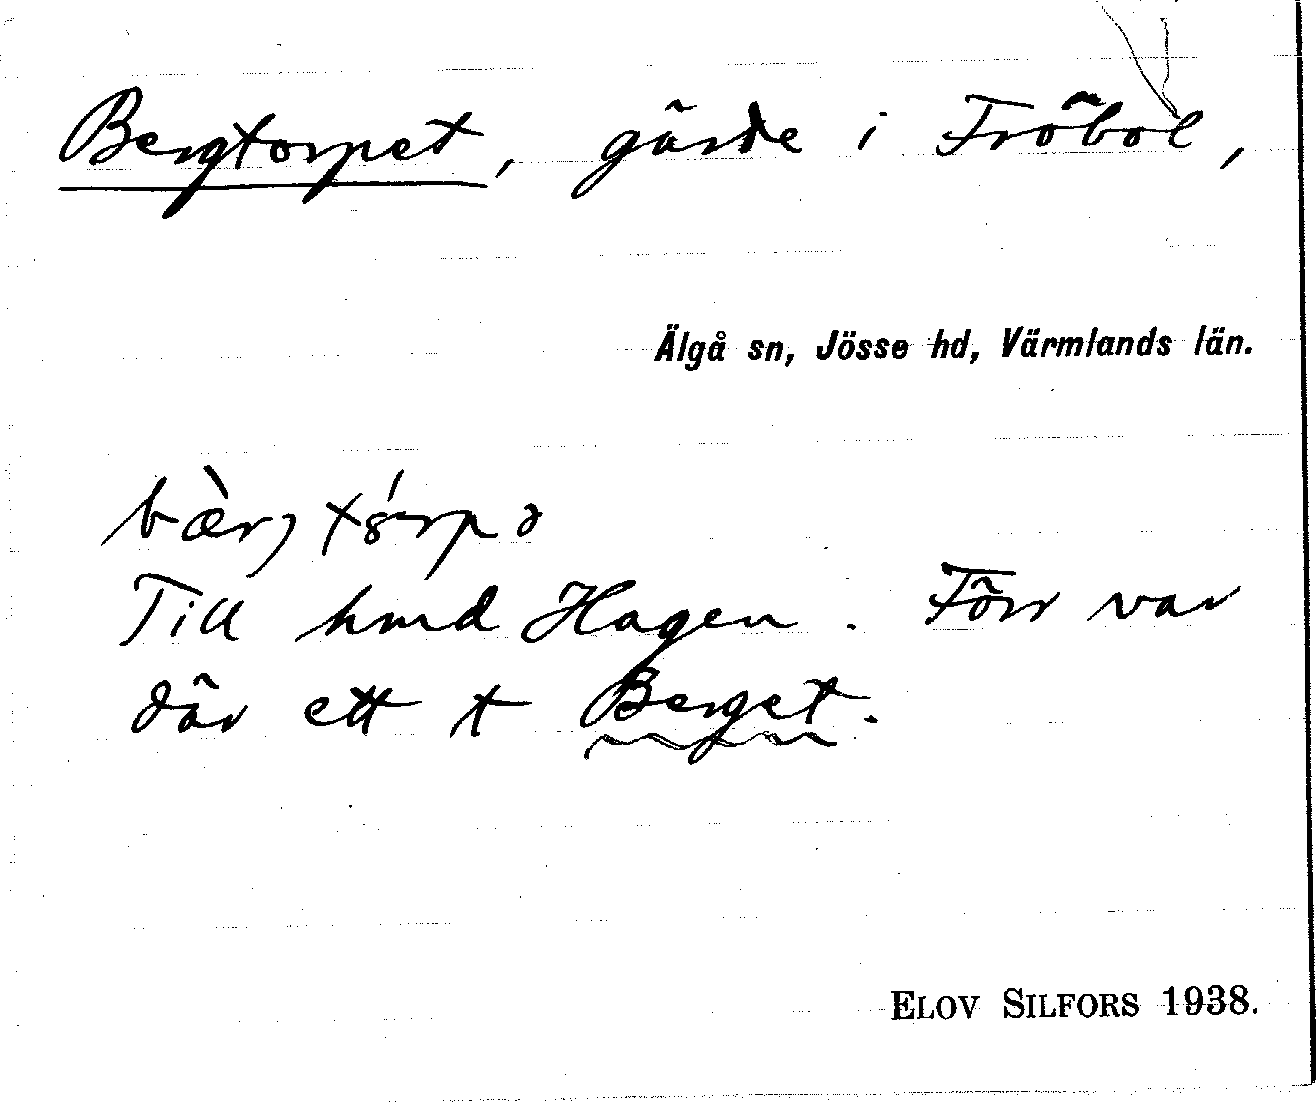 Bergtorpet, gärde i Fröbol,
Älgå sn, Jösse hd, Värmlands län.
Till hmd Hagen. Förr var
där ett t Berget.
ELOV SILFORS 1938.